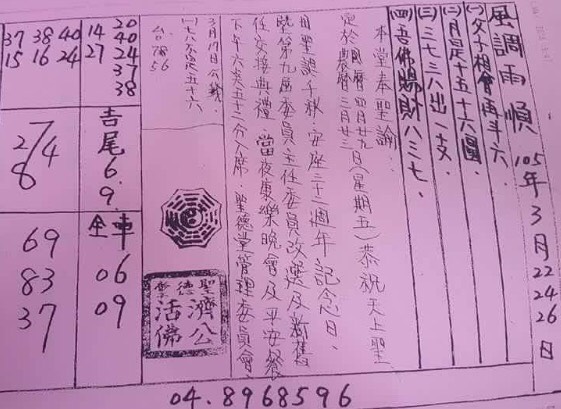 風調雨順 105年3月22 24 26日
(一)父子相會再斗六.
(二)月是十五十六圓.
(三)三七三八出一支.
(四)吾佛賜財八三七.
本堂奉聖諭.
定於國曆四月廿九日(星期五)恭祝天上聖
農曆三月廿三
母聖誕千秋.安座三十二週年記念日.
暨第九屆委員主任委員改選及新舊
任交接典禮.當夜康樂晚會及平安餐
下午六點五十二分入席.聖德堂管理委員會
聖德堂
濟公活佛
20
40
24
37
38
14
27
40
24
38
16
37
15
吉尾6.9.
2 7 4 8
全車
06
09
69
83
37
04.8968596